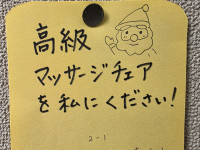 高級
マッサージチェア
を私にください!
2-1